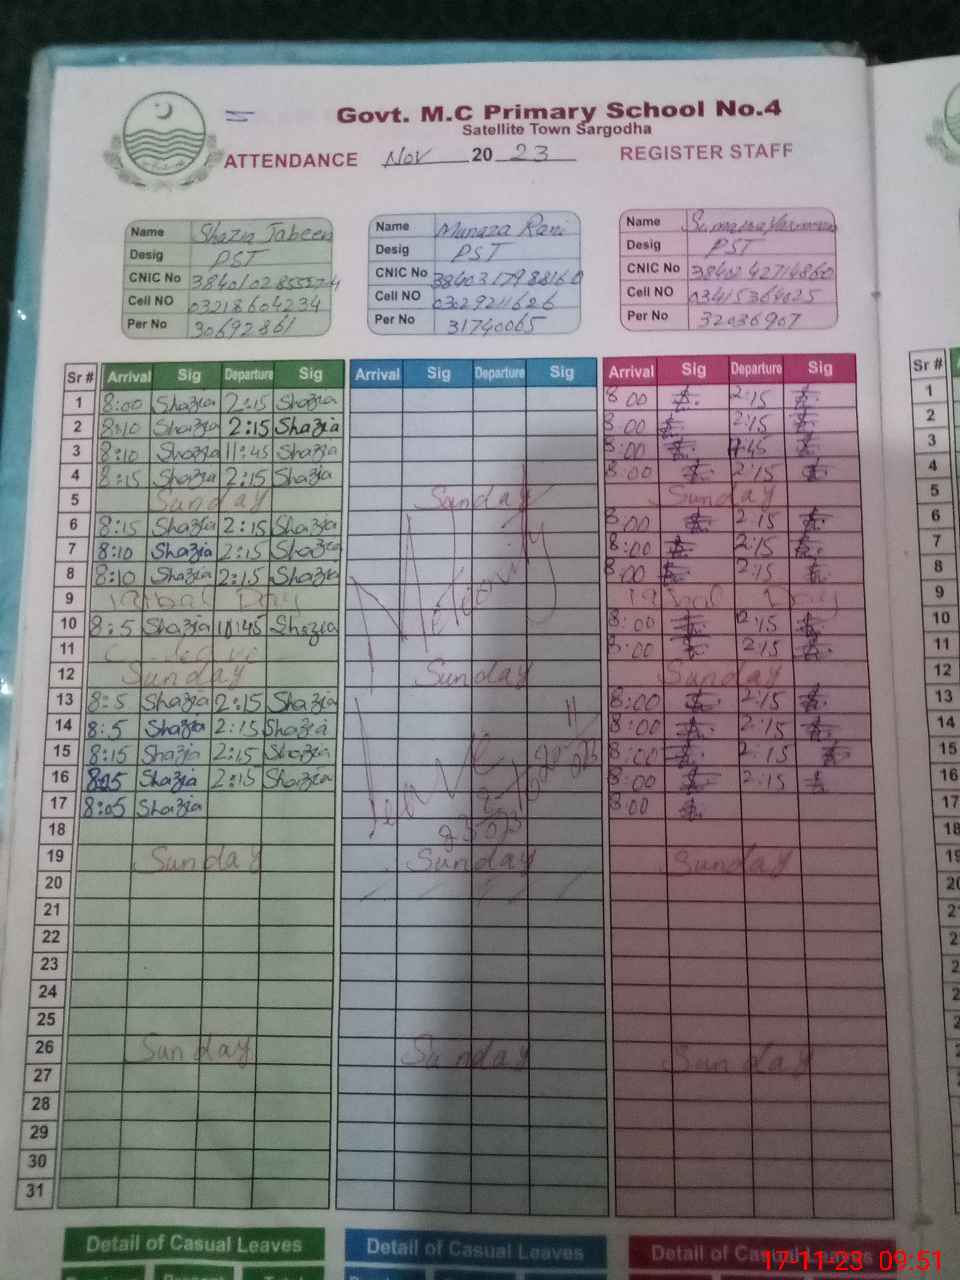 Govt. M.C Primary School No.4
Satellite Town Sargodha
ATTENDANCE Nov 20 23 REGISTER STAFF
Name Shazia Jabeen Name Munaza Rani Name
Desig PST Desig PST Desig PST
CNIC No CNIC No 3840317988160 CNIC No 3840242714860
Cell NO 03218604234 Cell NO 03029211626 Cell NO 03415364025
Per No 30692861 Per No 31740065 Per No 32036907
Sr # Arrival Sig Departure Sig Arrival Sig Departure Sig Arrival Sig Departure Sig Sr #
1 8:00 Shazia 2:15 Shazia 8:00 2:15 1
2 8:10 Shazia 2:15 Shazia 8:00 2:15 2
3 8:10 Shazia 11:45 Shazia 8:00 3
4 8:15 Shazia 2:15 Shazia 8:00 2:15 4
5 Sunday Sunday Sunday 5
6 8:15 Shazia 2:15 Shazia 8:00 2:15 6
7 8:10 Shazia 2:15 Shazia 8:00 2:15 7
8 8:10 Shazia 2:15 Shazia 8:00 2:15 8
9 Iqbal Day Iqbal Day 9
10 8:5 Shazia Shazia 8:00 10
11 8:00 2:15 11
12 Sunday Sunday Sunday 12
13 8:5 Shazia 2:15 Shazia 8:00 2:15 13
14 8:5 Shazia 2:15 Shazia 8:00 2:15 14
15 8:15 Shazia 2:15 Shazia 8:00 2:15 15
16 8:05 Shazia 2:15 Shazia 8:00 2:15 16
17 8:05 Shazia 8:00 17
Leave
18 18
19 Sunday Sunday Sunday 19
20 20
21 21
22
23
24
25
26 Sunday Sunday Sunday
27
28
29
30
31
Detail of Casual Leaves Detail of Casual Leaves Detail of Casual Leaves
17-11-23 09:51